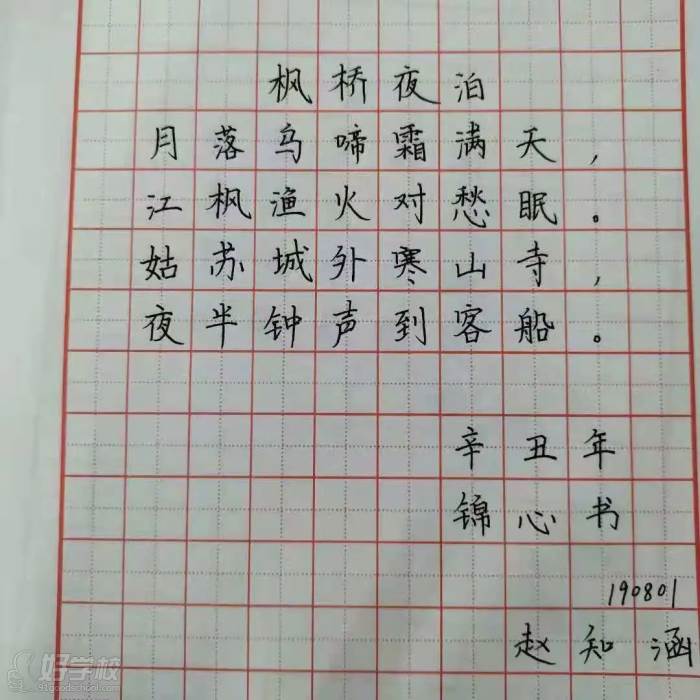 枫桥夜泊
月落乌啼霜满天，
江枫渔火对愁眠。
姑苏城外寒山寺，
夜半钟声到客船。
辛丑年
锦心书
190801
赵知涵
好学校
91goodschool.com